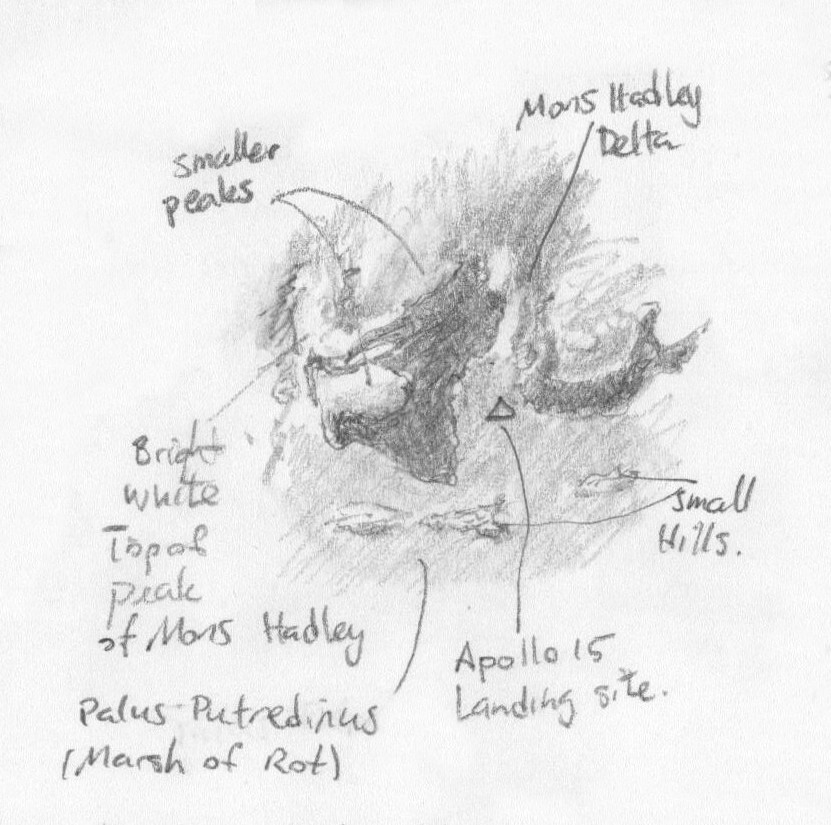 Mons Hadley
Delta
smaller
peaks
Bright
white
Top of
peak
of Mons Hadley
small
Hills.
Apollo 15
Landing site.
Palus Putredinus
(Marsh of Rot)